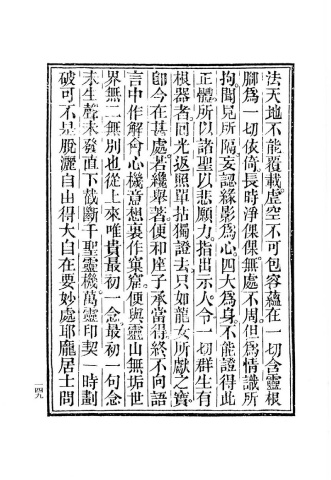 法天地不能覆載虛空不可包容蘊在一切含靈根
腳為一切依倚長時淨倮倮無處不周但為情識所
拘聞見所隔妄認緣影為心四大為身不能證得此
正體所以諸聖以悲願力指出示人令一切群生有
根器者回光返照單拈獨證去只如龍女所獻之寶
即今在甚處若纔舉著便和座子承當得終不向語
言中作解會心機意想裏作窠窟便與靈山無垢世
界無二無別也從上來唯貴最初一念最初一句念
未生聲未發直下截斷千聖靈機萬靈印契一時劃
破可不是脫灑自由得大自在要妙處耶龐居士問
四九